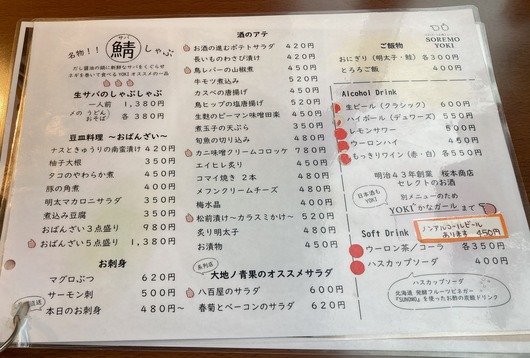 名物!!
サバ
鯖
しゃぶ
だし醤油の鍋に新鮮なサバをくぐらせ
ネギを巻いて食べるYOKIオススメの一品
生サバのしゃぶしゃぶ
一人前 1,380円
〆の うどん おそば 各 380円
豆皿料理 〜おばんざい〜
ナスときゅうりの南蛮漬け 420円
柚子大根 350円
タコのやわらか煮 450円
豚の角煮 400円
明太マカロニサラダ 350円
煮込み豆腐 350円
おばんざい3点盛り 980円
おばんざい5点盛り 1,380円
お刺身
マグロぶつ 620円
サーモン刺 500円
本日のお刺身 480円〜
直送
酒のアテ
お酒の進むポテトサラダ 420円
長いものわさび漬け 450円
鳥レバーの山椒煮 450円
牛モツ煮込み 520円
カスベの唐揚げ 450円
鳥ヒップの塩唐揚げ 520円
生麩のピーマン味噌田楽 450円
煮玉子の天ぷら 350円
旬魚の切り込み 480円
カニ味噌クリームコロッケ 780円
エイヒレ炙り 450円
コマイ焼き 2本 480円
メフンクリームチーズ 480円
梅水晶 400円
松前漬け〜カラスミかけ〜 520円
炙り明太子 480円
お漬物 450円
系列店
大地ノ青果のオススメサラダ
八百屋のサラダ 600円
春菊とベーコンのサラダ 620円
SOREMO
YOKI
ご飯物
おにぎり (明太子・鮭) 各300円
とろろご飯 400円
Alcohol Drink
生ビール (クラシック) 600円
ハイボール (デュワーズ) 550円
レモンサワー 500円
ウーロンハイ 450円
もっきりワイン (赤・白) 各550円
明治43年創業 桜本商店
セレクトのお酒
日本酒も
YOKI
別メニューのため
YOKIかなガールまで
ノンアルコールビール
あります 450円
Soft Drink
ウーロン茶/コーラ 各350円
ハスカップソーダ 400円
ハスカップソーダ
北海道 発酵フルーツビネガー
『SUNONO』を使ったお酢の炭酸ドリンク